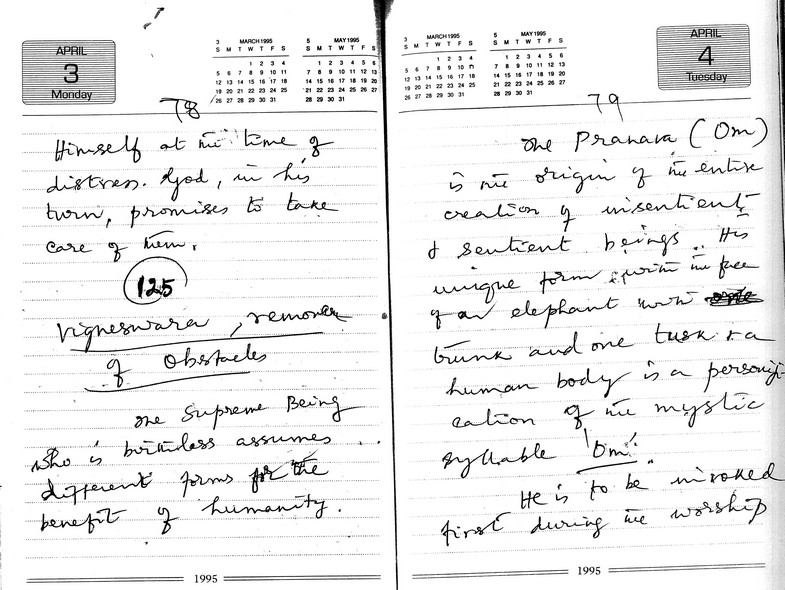 APRIL
3
Monday
3 MARCH 1995
S M T W T F S
1 2 3 4
5 6 7 8 9 10 11
12 13 14 15 16 17 18
19 20 21 22 23 24 25
26 27 28 29 30 31
5 MAY 1995
S M T W T F S
1 2 3 4 5 6
7 8 9 10 11 12 13
14 15 16 17 18 19 20
21 22 23 24 25 26 27
28 29 30 31
78
Himself at the time of
distress. God, in his
turn, promises to take
care of them.
125
Vigneswara, remover
of Obstacles
The Supreme Being
who is birthless assumes
different forms for the
benefit of humanity.
1995
3 MARCH 1995
S M T W T F S
1 2 3 4
5 6 7 8 9 10
12 13 14 15 16 17 18
19 20 21 22 23 24 25
26 27 28 29 30 31
5 MAY 1995
S M T W T F S
1 2 3 4 5 6
7 8 9 10 11 12 13
14 15 16 17 18 19 20
21 22 23 24 25 26 27
28 29 30 31
APRIL
4
Tuesday
79
The Pranava (Om)
is the origin of the entire
creation of insentient
& sentient beings. His
unique form, with the face
of an elephant with
trunk and one tusk & a
human body is a personifi-
cation of the mystic
syllable 'Om'.
He is to be invoked
first during the worship
1995